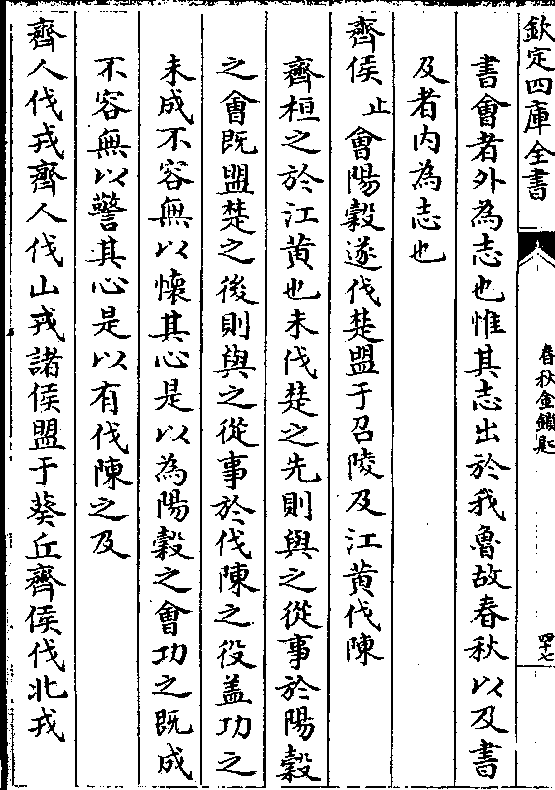 欽定四庫全書
春秋金鎖匙
四十七
書會者外為志也惟其志出於我魯故春秋以及書
及者内為志也
齊侯止會陽榖遂伐楚盟于召陵及江黄伐陳
齊桓之於江黄也未伐楚之先則與之從事於陽榖
之會既盟楚之後則與之從事於伐陳之役盖功之
未成不容無以懷其心是以為陽榖之會功之既成
不容無以警其心是以有伐陳之及
齊人伐戎齊人伐山戎諸侯盟于葵丘齊侯伐北戎